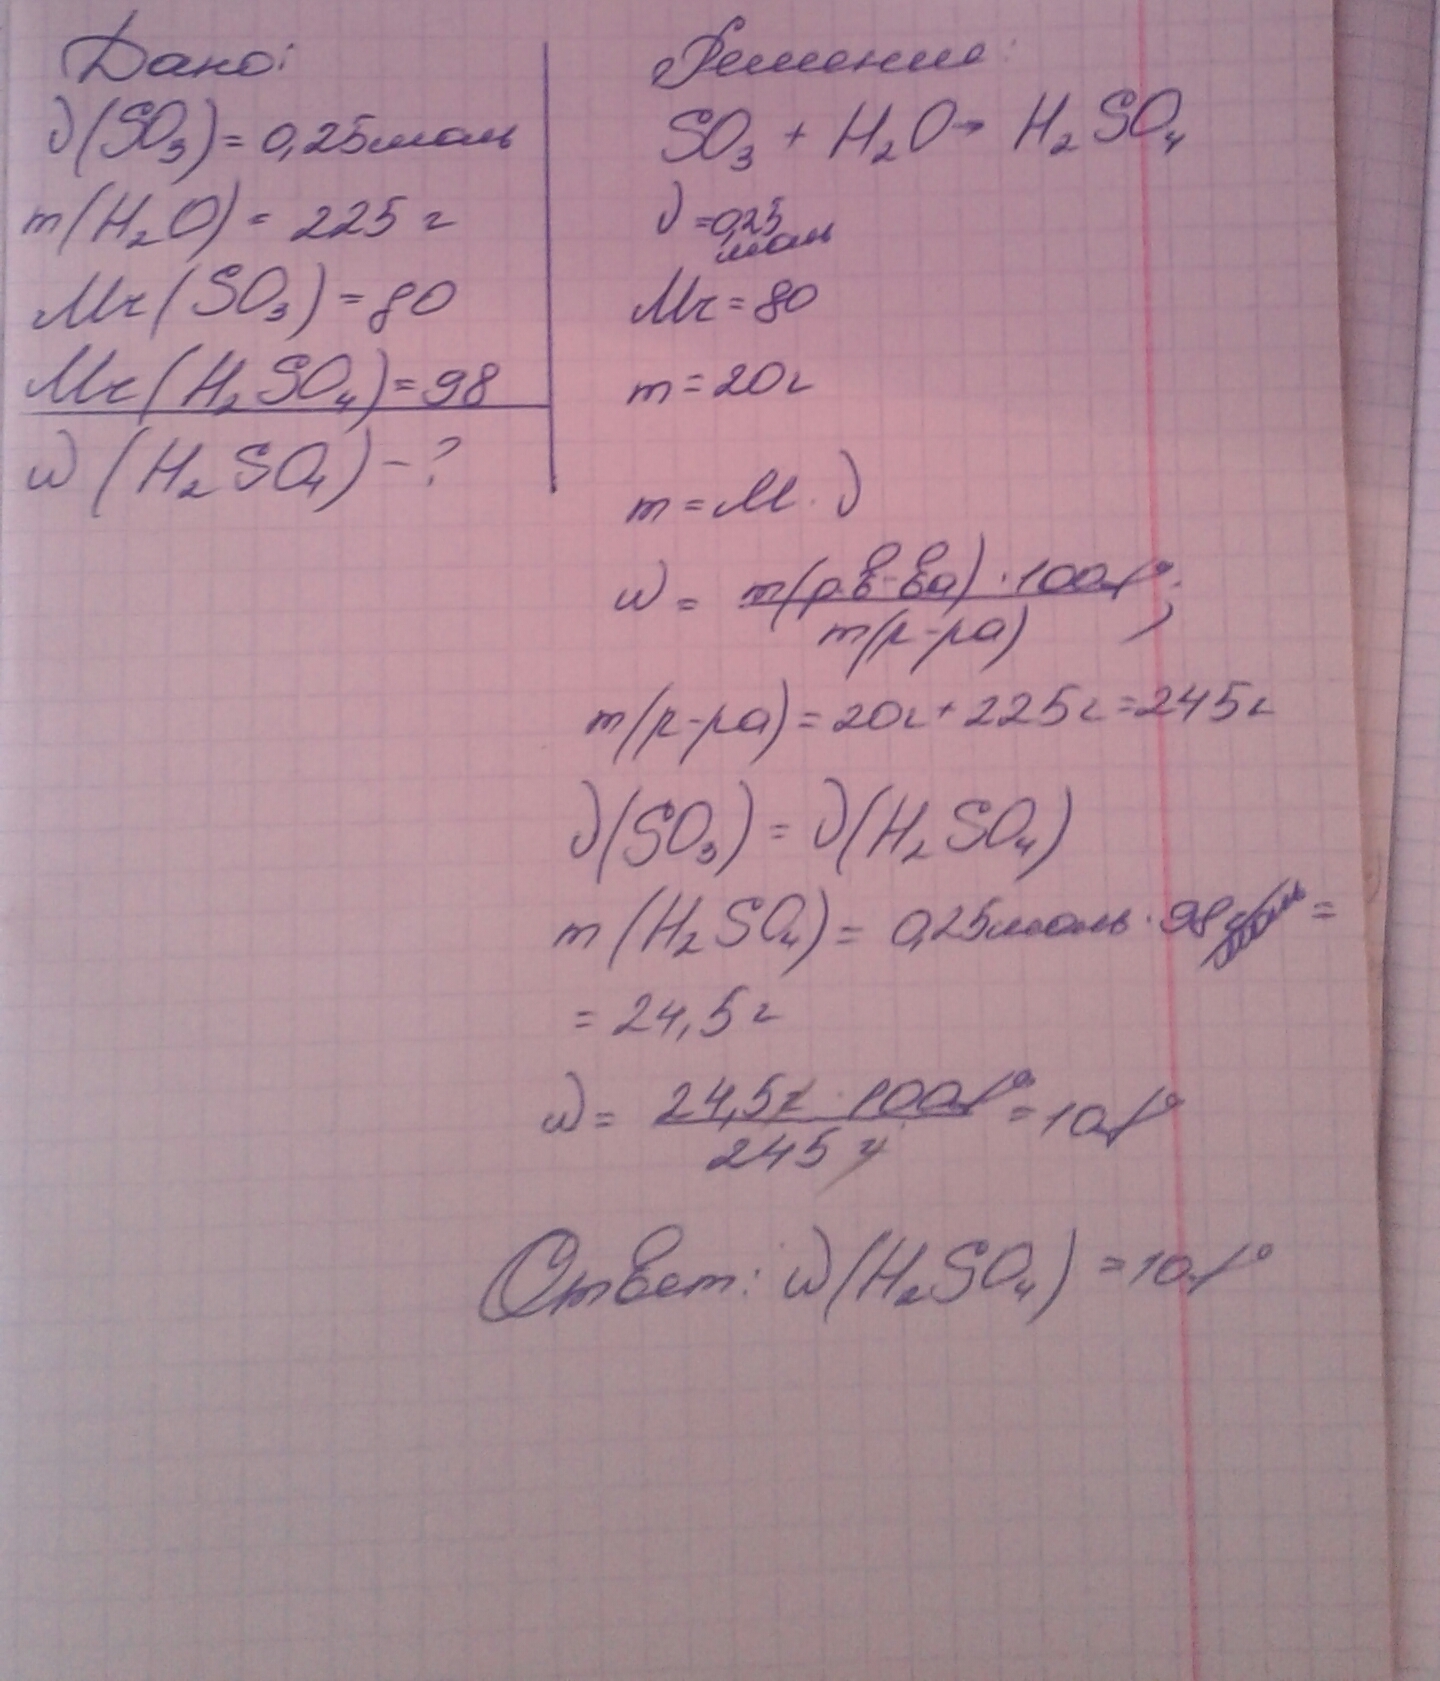 Дано:
ν(SO₃) = 0,25моль
m(H₂O) = 225 г
Mr(SO₃) = 80
Mr(H₂SO₄) = 98
ω(H₂SO₄) - ?
Решение:
SO₃ + H₂O → H₂SO₄
ν = 0,25
моль
Mr = 80
m = 20г
m = M · ν
ω = m(р.в-ва) · 100% ;
m(р-ра)
m(р-ра) = 20г + 225г = 245г
ν(SO₃) = ν(H₂SO₄)
m(H₂SO₄) = 0,25моль · 98 =
= 24,5 г
ω = 24,5г · 100% = 10%
245 г
Ответ: ω(H₂SO₄) = 10%